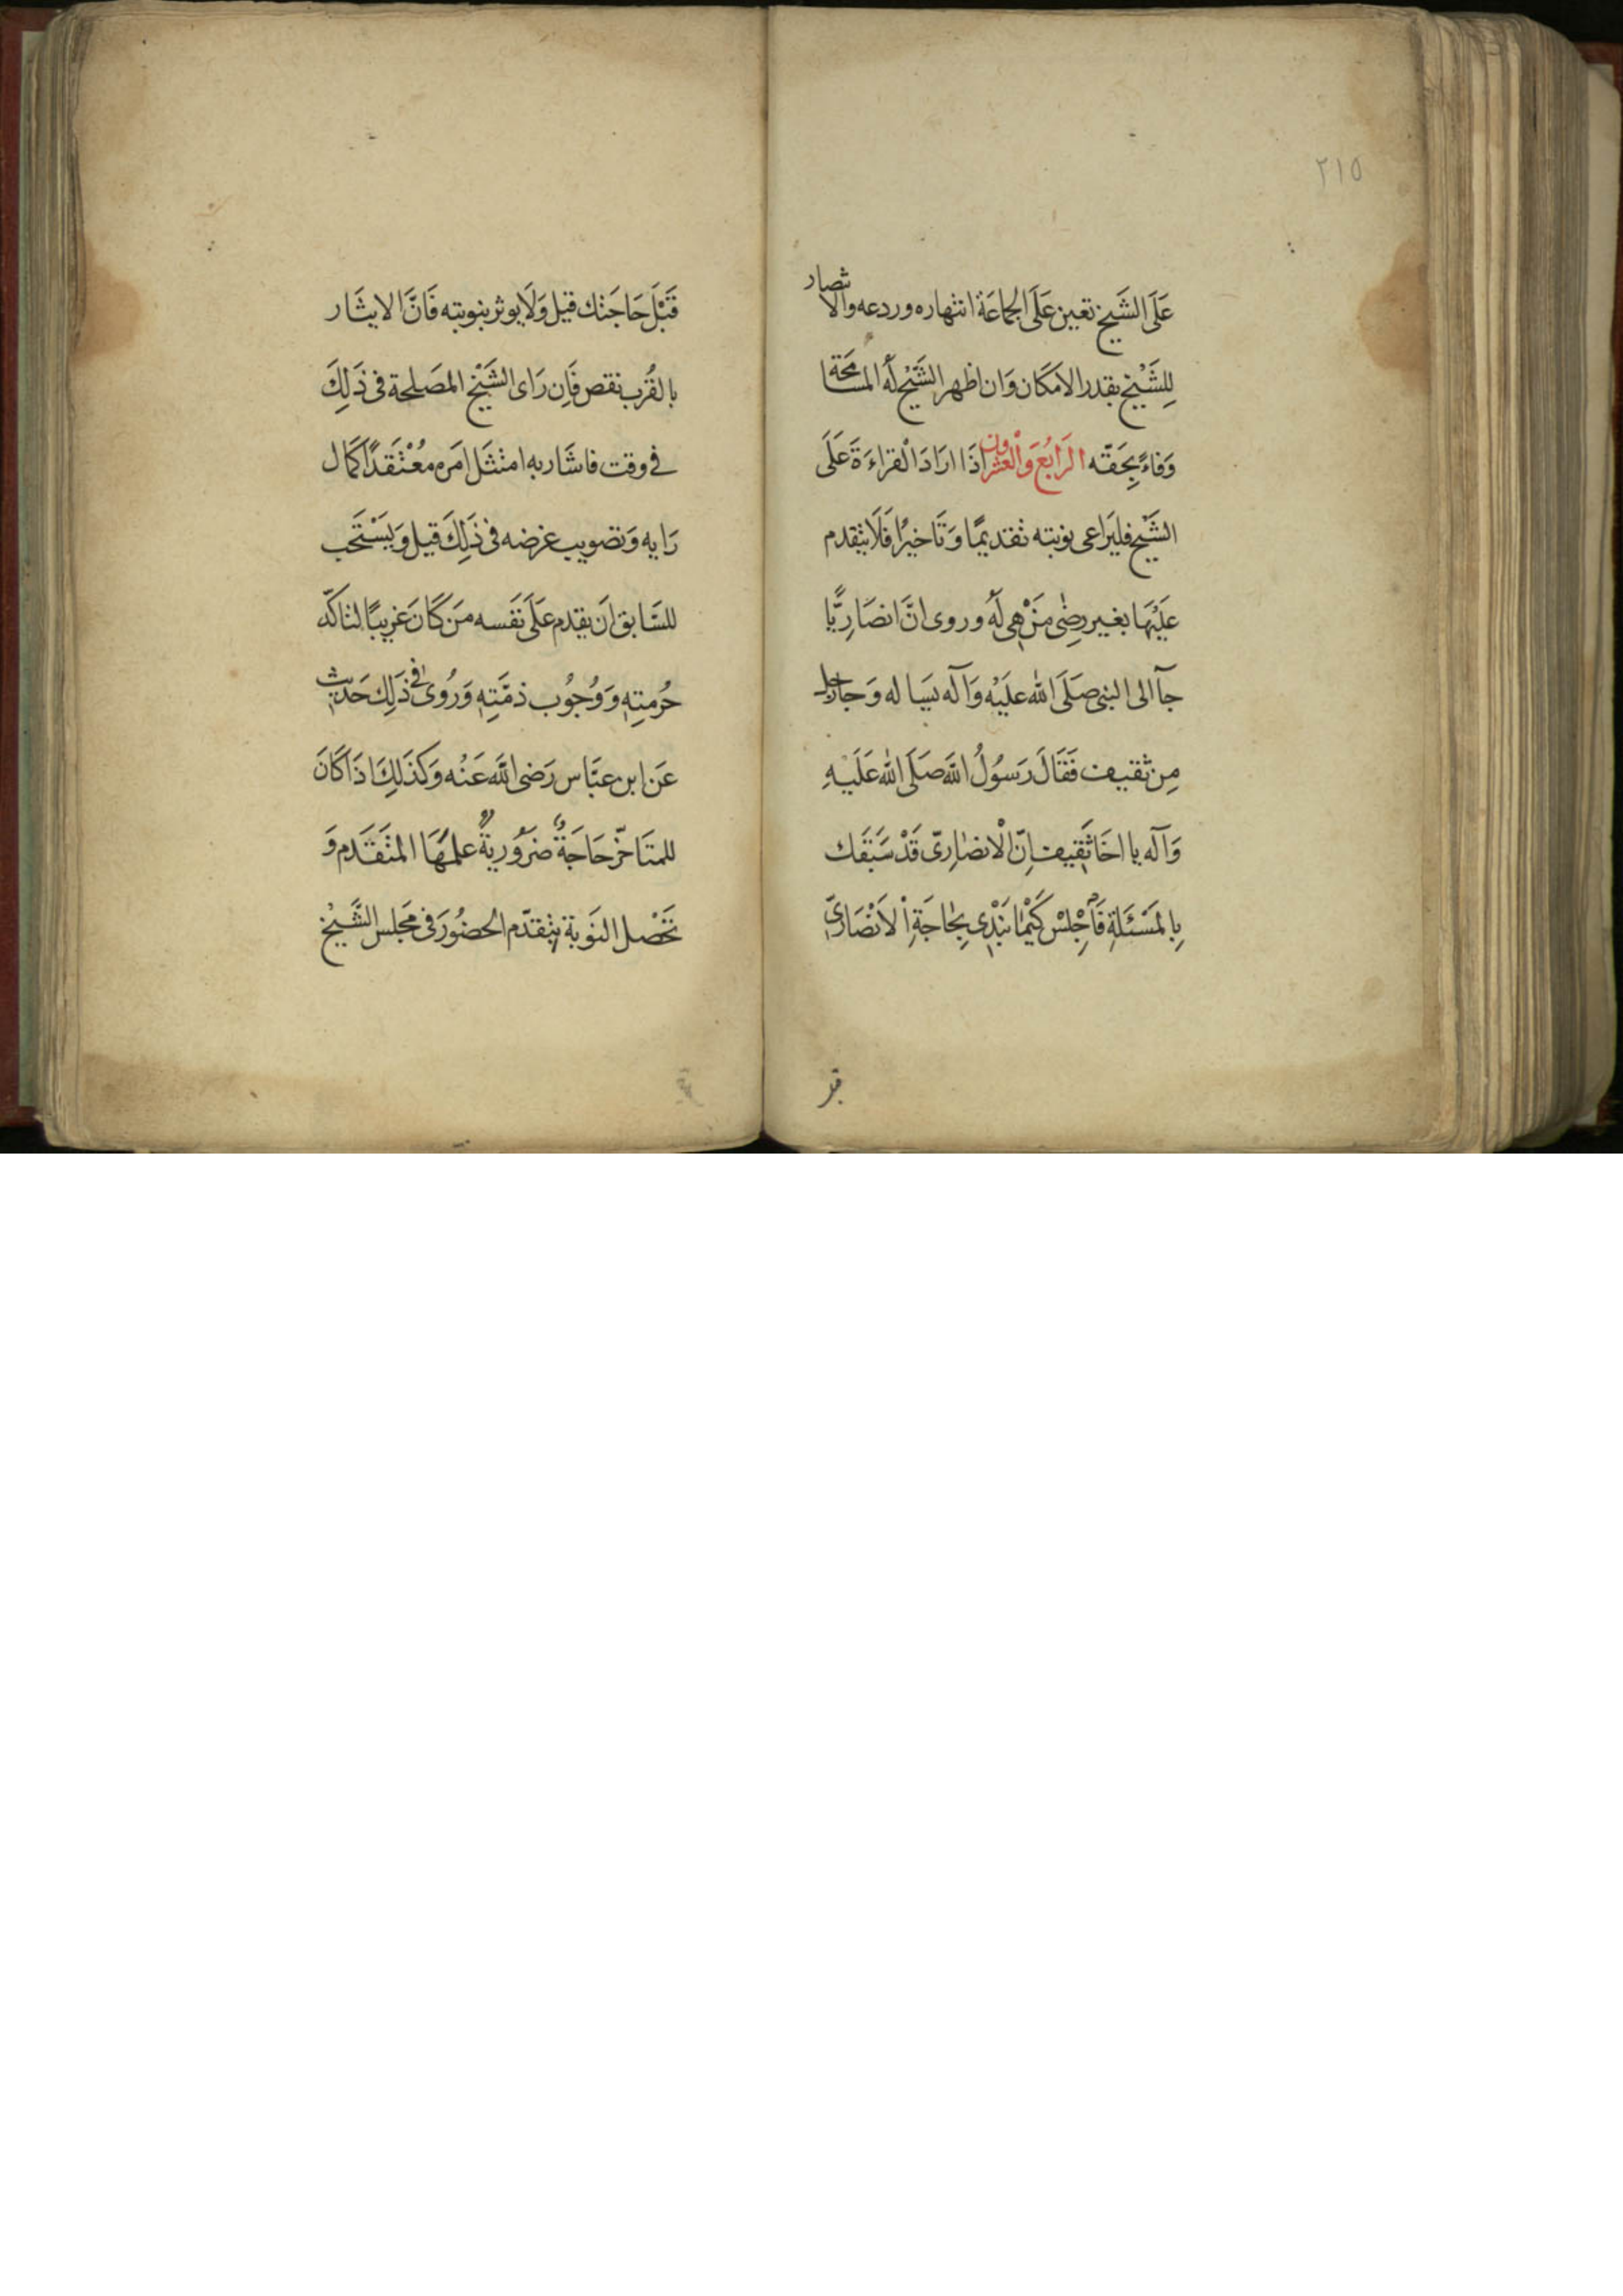 ٢١٥
عَلَى الشَّيخ تعين عَلَى الجَمَاعَة انتهاره وردعه والانتصار
لِلشَّيْخ بقدر الامكان وَان اظهر الشَّيْخ لَه المسامحة
وَفاءً بِحَقّه الرَابعُ وَالْعشرون اذَا ارَادَ القراءَةَ عَلَى
الشَّيْخ فليَراعى نوبته تقديمًا وَتَاخيرًا فَلَا يتقدم
عَلَيْهَا بغير رضٰى مَنْ هِى لَهُ وروى انَّ انصَارِيًّا
جآ الى النبى صَلَى الله علَيْه وَآله يسَاله وَجآ رجل
مِن ثقيف فَقَالَ رَسوُلُ الله صَلَى الله عَلَيْهِ
وَآله يا اخَا ثَقِيف اِنّ الْانصَارِىّ قَدْ سَبَقَك
بِالمَسْئَلَةِ فَاجْلِسْ كَيْمَا نَبْدِى بِحَاجَةِ اْلاَنْصَارِىّ
قبل
قَبْلَ حَاجَتك قيل وَلَا يوثر بنوبته فَانَّ الايثَار
بالقُرب نقص فَاِن رَاى الشَّيْخ المَصَلحة فى ذَلِكَ
فى وقت فاشَار به امتثَل امَره مُعْتَقدًا كَمَال
رَايه وَتصويب غرضه فى ذَلِكَ قيل وَيَسْتَحب
للسَّابق اَن يقدم عَلَى نَفسه مَن كَانَ غَرِيبًا لتاكّد
حُرمَتِهِ وَوُجُوب ذمَّتِهِ وَرُوىٰ فى ذَلِك حَديث
عَن ابن عبَّاس رَضى الله عَنْه وَكَذَلِكَ اذَا كَانَ
للمتَاخّر حَاجَةٌ ضَرُورِيَةٌ علمهَا المتَقَدم وَ
تَحْصل النَوبة بتَقدّم الحضُور فى مَجلس الشَّيْخ